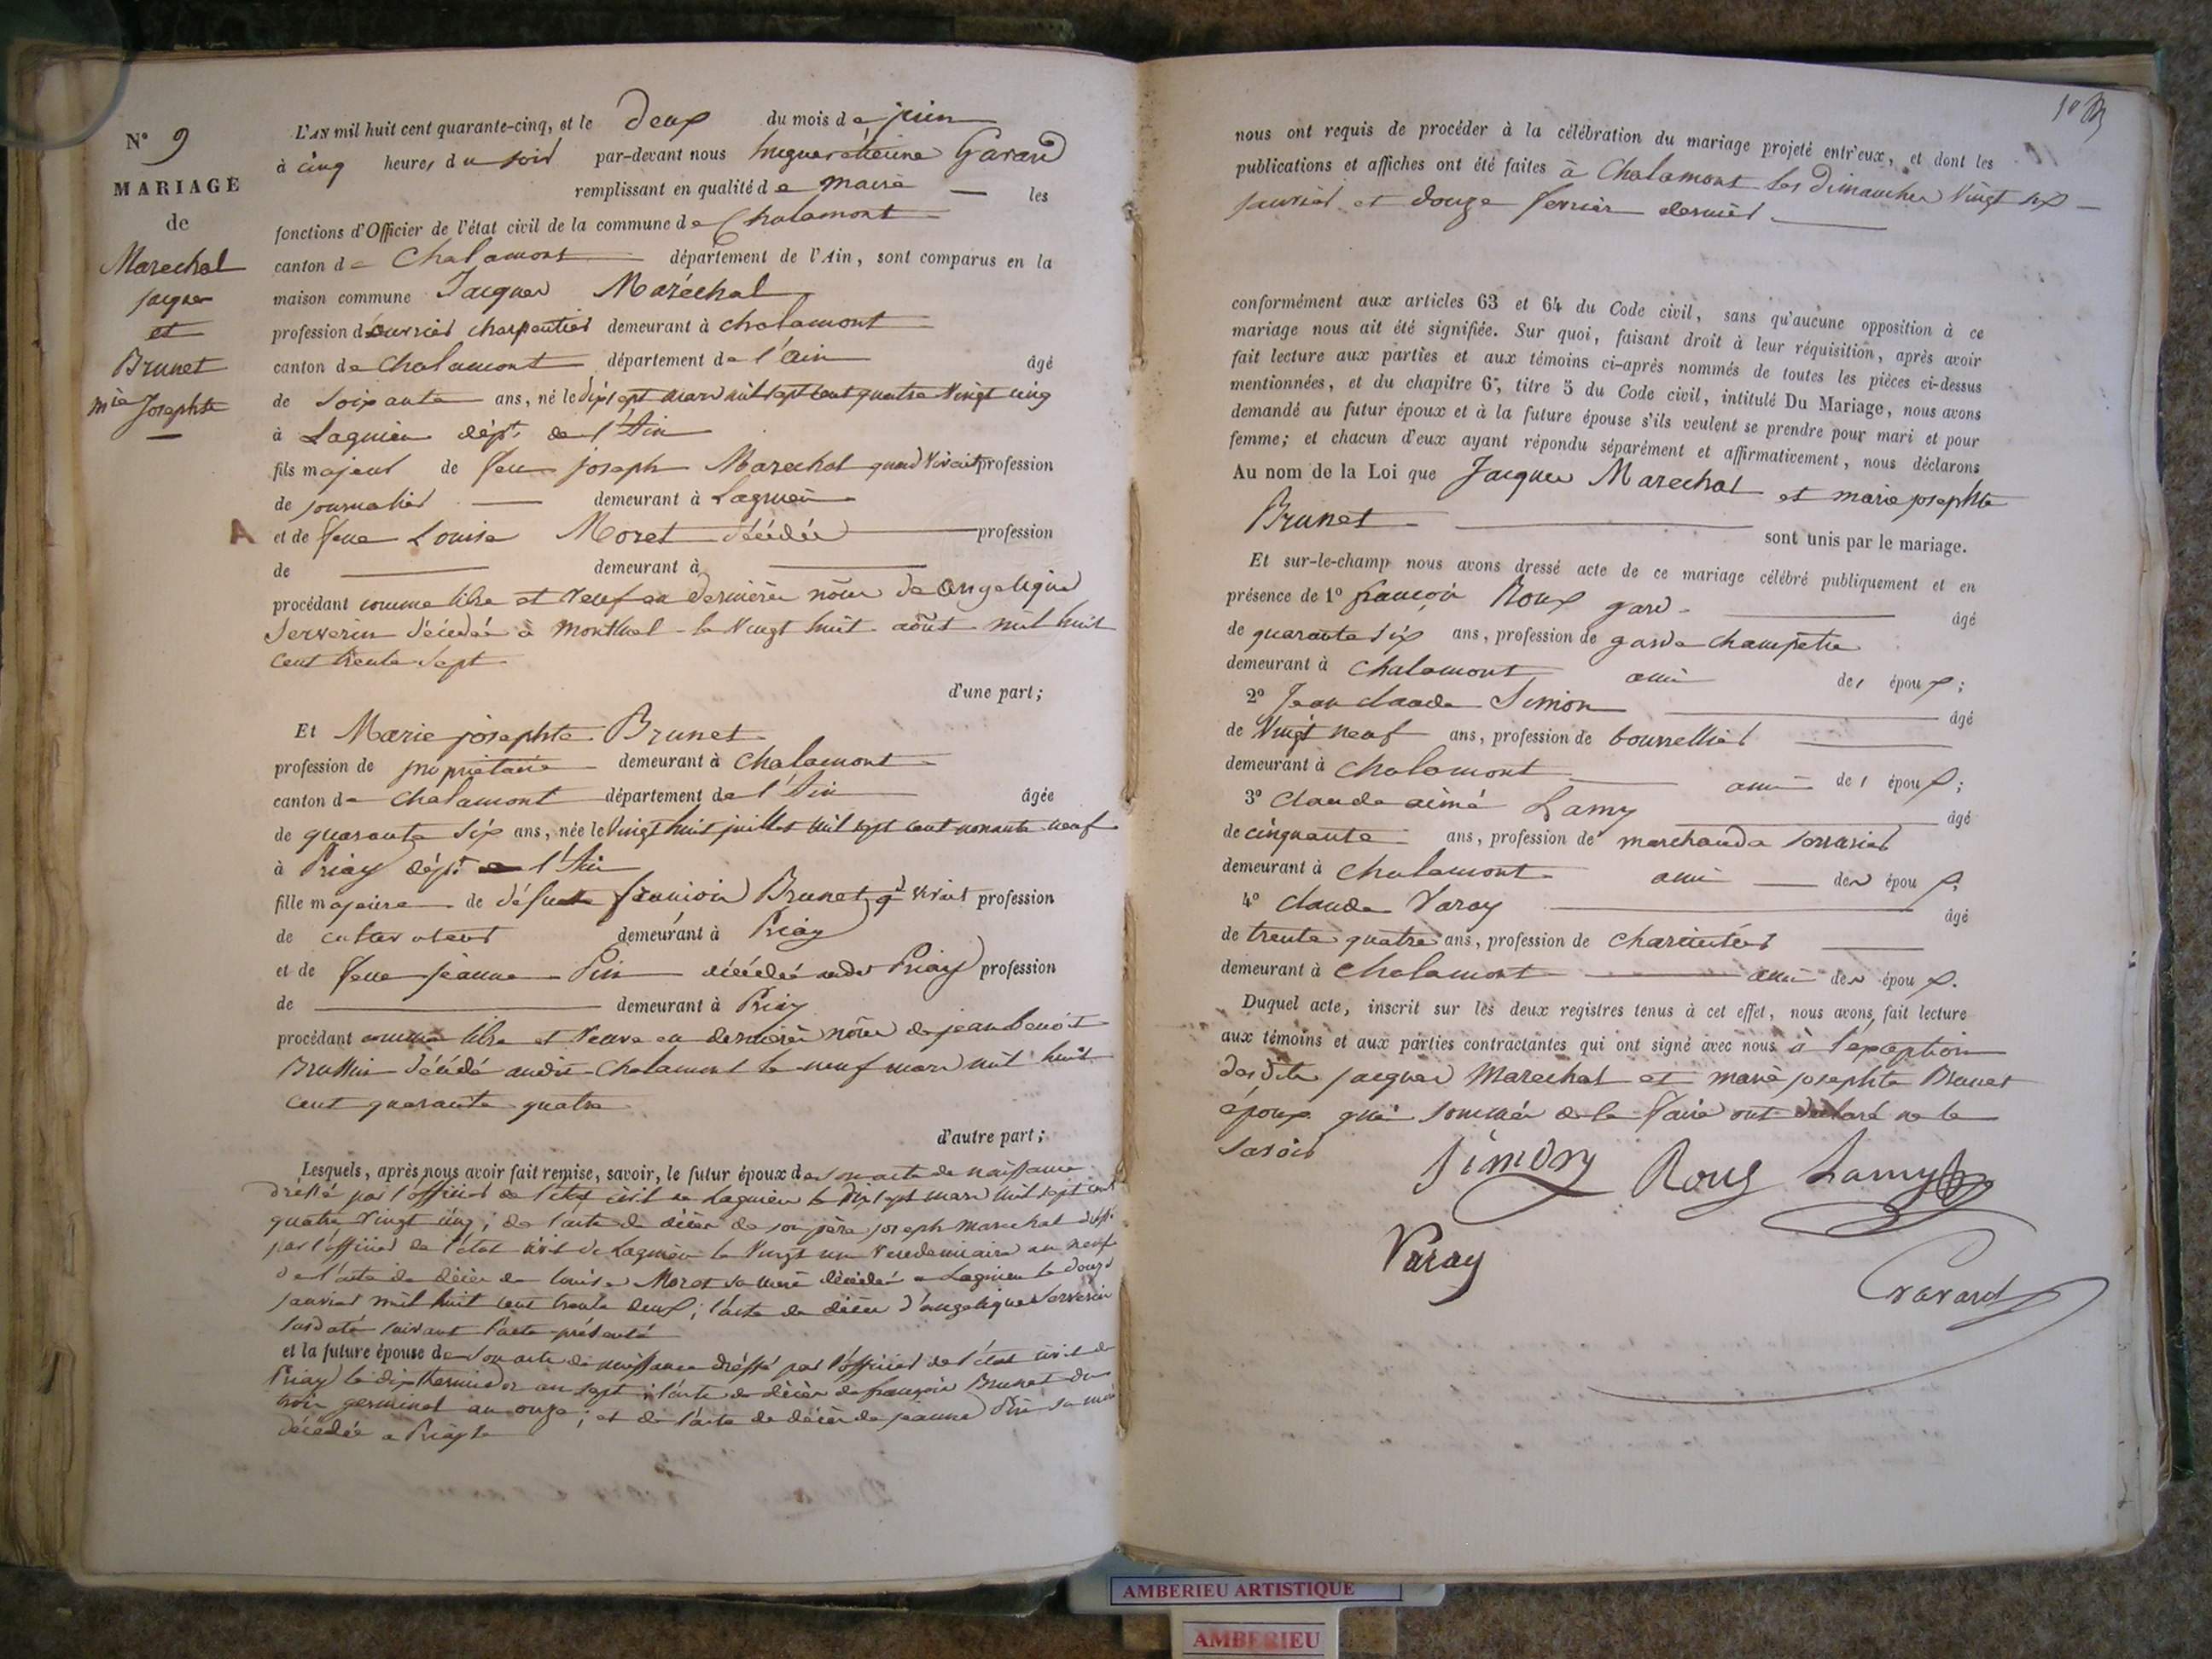 N° 9
MARIAGE
de
Marechal
jacques
et
Brunet
mie Josephte
L'AN mil huit cent quarante-cinq, et le deux du mois de juin
à cinq heures du soir par-devant nous hugues étienne Gavard
remplissant en qualité de maire les
fonctions d'Officier de l'état civil de la commune de Chalamont
canton de Chalamont département de l'Ain, sont comparus en la
maison commune Jacques Maréchal
profession d'ouvrier charpentier demeurant à chalamont
canton de chalamont département de l'ain âgé
de soixante ans, né le dix sept mars mil sept cent quatre vingt cinq
à Lagnieu dépt. de l'Ain
fils majeur de feu joseph Marechal quand vivait profession
de journalier demeurant à Lagnieu
A et de feue Louise Moret décédée profession
de demeurant à
procédant comme libre et veuf en dernières nôces de angelique
Serverin décédée à Montluel le vingt huit août mil huit
cent trente sept
d'une part;
Et Marie josephte Brunet
profession de propriétaire demeurant à chalamont
canton de chalamont département de l'Ain âgée
de quarante six ans, née le vingt huit juillet mil sept cent nonante neuf
à Priay dépt. de l'Ain
fille majeure de défunt françois Brunet qd vivait profession
de cultivateur demeurant à Priay
et de feue jeanne Pin décédée audit Priay profession
de demeurant à Priay
procédant comme libre et veuve en dernières nôces de jean benoît
décédé audit Chalamont le neuf mars mil huit
cent quarante quatre
d'autre part;
Lesquels, après nous avoir fait remise, savoir, le futur époux de son acte de naissance
dréssé par l'officier de l'état civil de Lagnieu le dix sept mars mil sept cent
quatre vingt cinq; de l'acte de décès de son père joseph marechal
par l'officier de l'état civil de Lagnieu le vingt un vendemiaire an neuf
de l'acte de décès de louise Moret sa mère décédée a Lagnieu le douze
janvier mil huit cent trente deux; l'acte de décès d'angelique Serverin
susdaté suivant l'acte présenté
et la future épouse de son acte de naissance dréssé par l'officier de l'état civil de
Priay le dix thermidor an sept; l'acte de décès de françois Brunet du
trois germinal an onze; et de l'acte de décès de jeanne Pin sa mère
décédée a Priay le
nous ont requis de procéder à la célébration du mariage projeté entr'eux, et dont les
publications et affiches ont été faites à Chalamont les dimanches vingt six
janvier et douze fevrier dernier
conformément aux articles 63 et 64 du Code civil, sans qu'aucune opposition à ce
mariage nous ait été signifiée. Sur quoi, faisant droit à leur réquisition, après avoir
fait lecture aux parties et aux témoins ci-après nommés de toutes les pièces ci-dessus
mentionnées, et du chapitre 6, titre 5 du Code civil, intitulé Du Mariage, nous avons
demandé au futur époux et à la future épouse s'ils veulent se prendre pour mari et pour
femme; et chacun d'eux ayant répondu séparément et affirmativement, nous déclarons
Au nom de la Loi que Jacques Marechal et marie josephte
Brunet
sont unis par le mariage.
Et sur-le-champ nous avons dressé acte de ce mariage célébré publiquement et en
présence de 1° françois Roux gard âgé
de quarante six ans, profession de garde champetre
demeurant à chalamont ami des époux;
2° Jean claude Simon âgé
de vingt neuf ans, profession de bourrellier
demeurant à chalamont ami des époux;
3° claude aimé Lamy âgé
de cinquante ans, profession de marchand serrurier
demeurant à chalamont ami des époux,
4° claude Varay âgé
de trente quatre ans, profession de
demeurant à chalamont ami des époux.
Duquel acte, inscrit sur les deux registres tenus à cet effet, nous avons fait lecture
aux témoins et aux parties contractantes qui ont signé avec nous à l'exception
desdits jacques Marechal et marie josephte Brunet
époux qui sommés de le faire ont déclaré ne le
savoir
Simon Roux Lamy
Varay
Gavard
AMBERIEU ARTISTIQUE
AMBERIEU